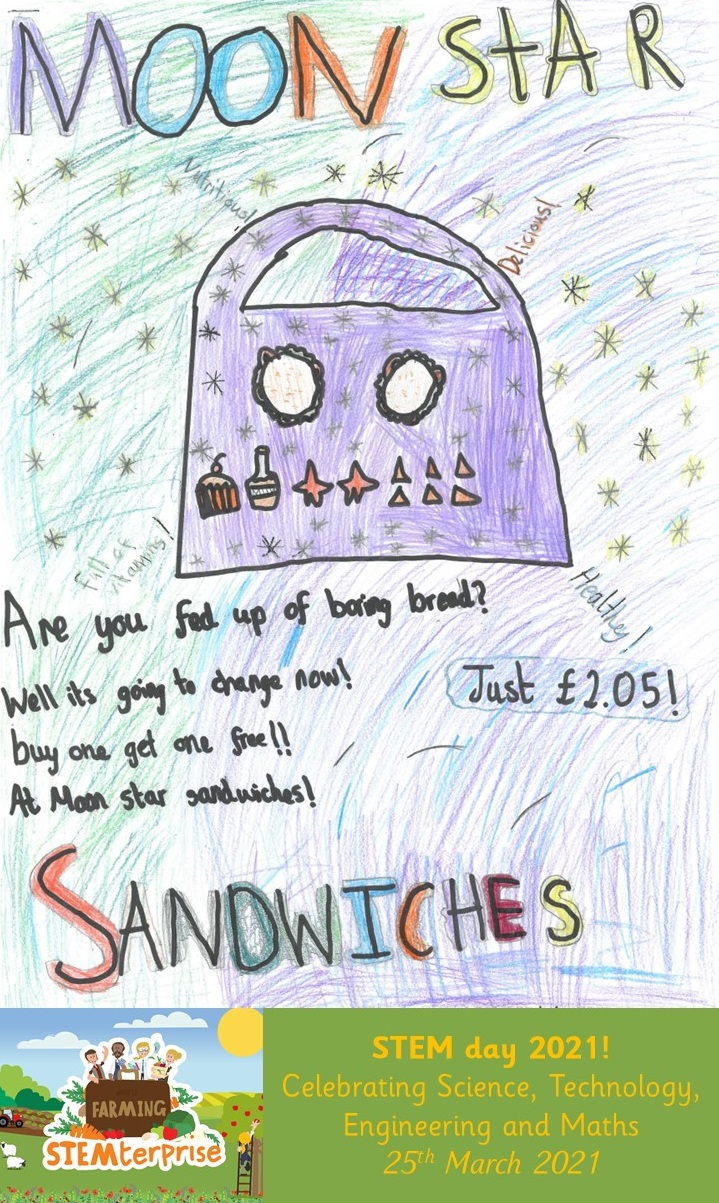 MOON STAR
Nutritious!
Delicious!
Full of
vitamins!
Healthey!
Are you fed up of boring bread?
Well its going to change now!
Just £2.05!
buy one get one free!!
At Moon star sandwiches!
SANDWICHES
FARMING
STEMterprise
STEM day 2021!
Celebrating Science, Technology,
Engineering and Maths
25th March 2021